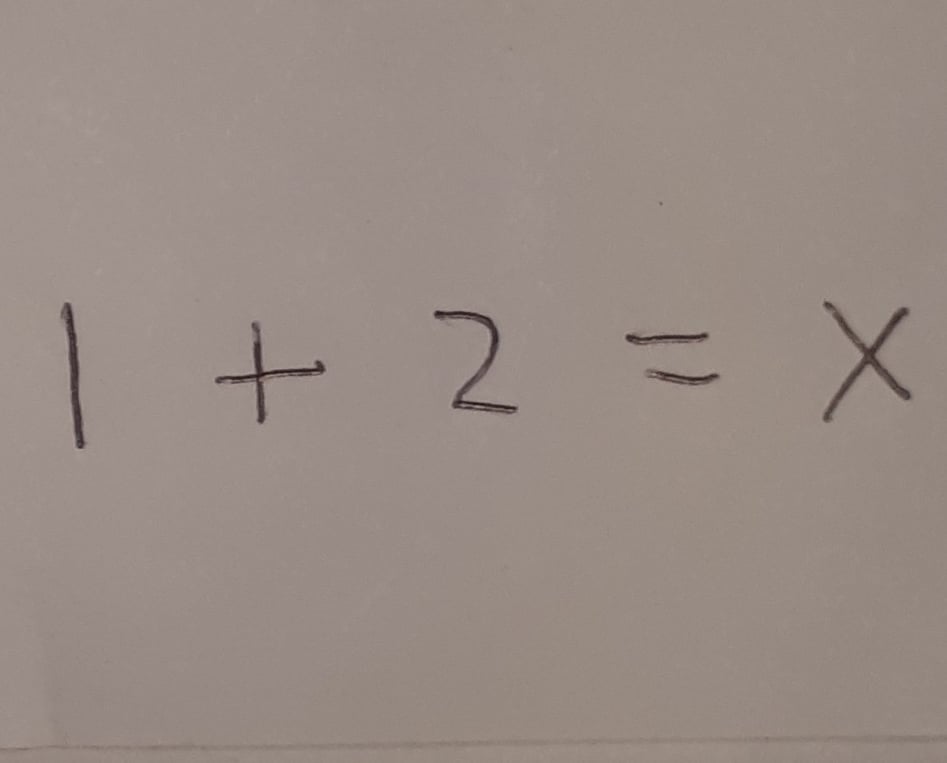 1 + 2 = x